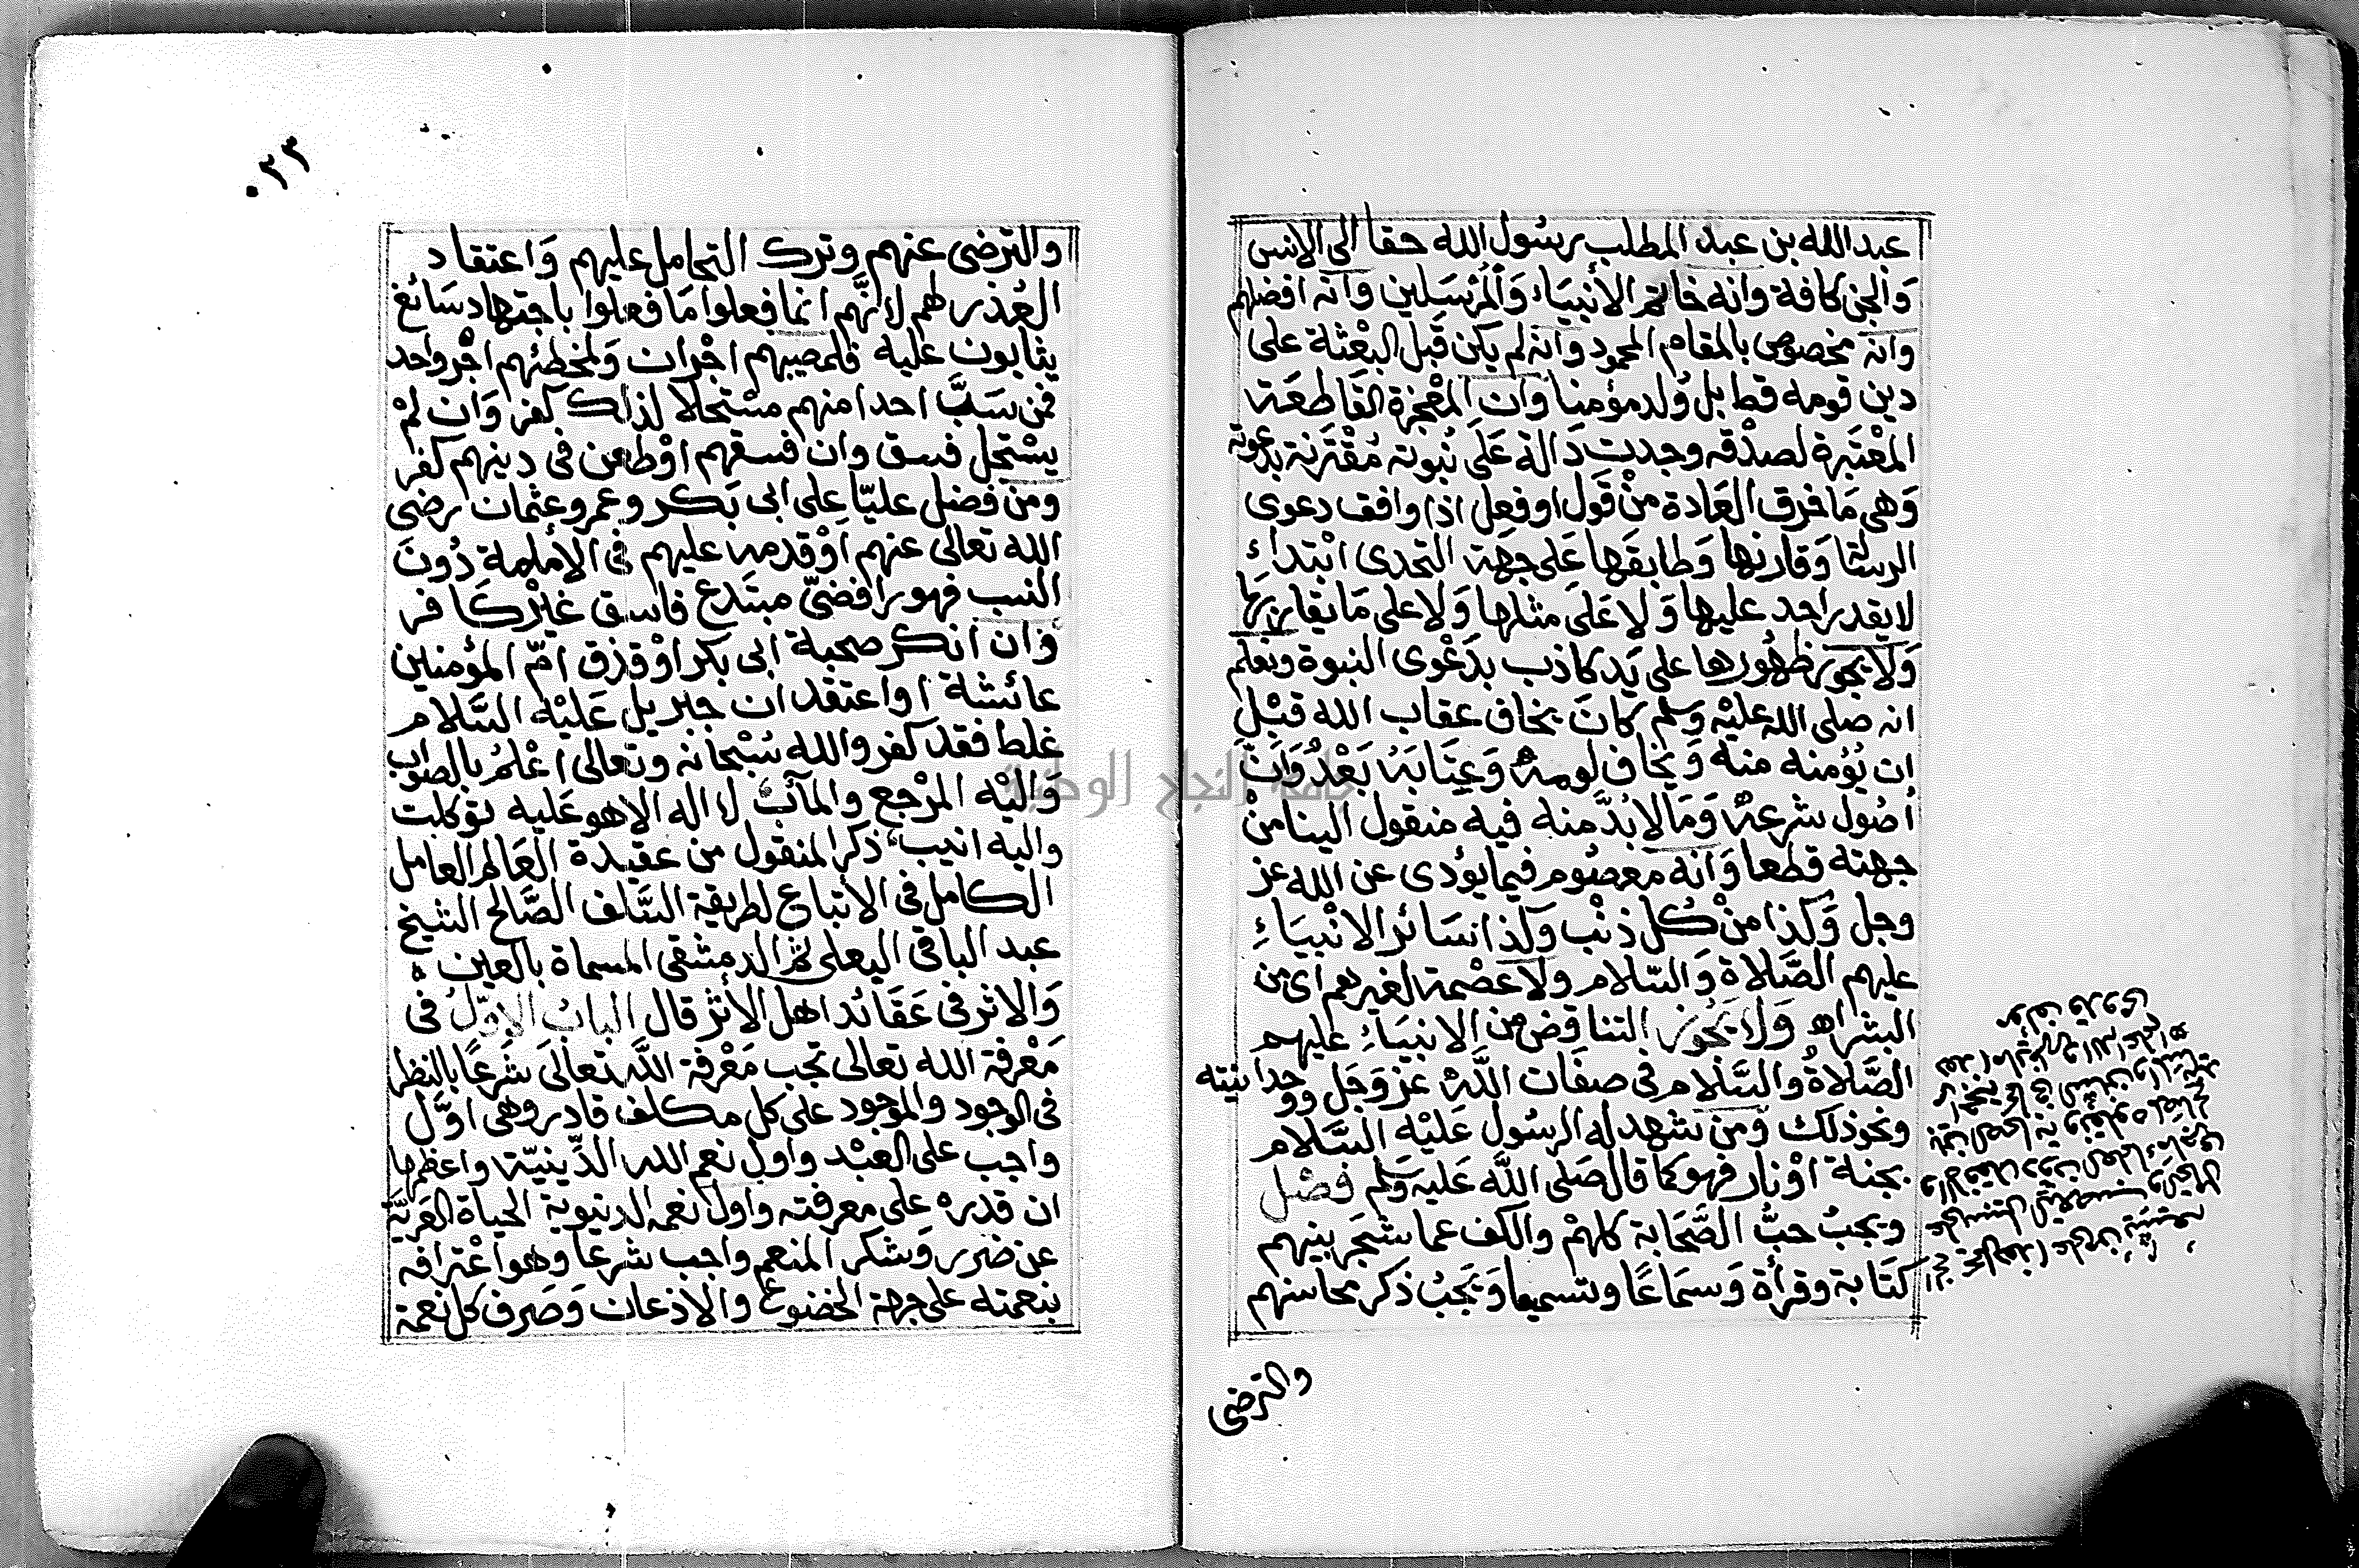 عبد الله بن عبد المطلب رسول الله حقا الى الانس
وَالجن كافة وانه خاتم الأنبيَاء وَالمُرْسَلين وَانه افضلهم
وانه مخصوص بالمقام المحمود وانه لم يكن قَبل البعْثة على
دين قومه قط بل وُلد مؤمنا وان المعْجزة القَاطعَة
المعْتبَرة لصدْقه وجدت دَالة عَلَى نُبوته مُقْترنة بدعوته
وَهى مَا خرق العَادة منْ قَول او فعل اذا وافق دعوى
الرسالة وَقارنها وَطابقَها عَلى جهَة التحدى ابْتداءً
لا يقدر احد عليها وَلا عَلَى مثلها وَلا على مَا يقاربها
وَلا يجوز ظهُورها على يَد كاذب بدَعْوى النبوة ونعلم
انه صلى الله عليْه وَسَلم كانَ يخاف عقاب الله قبْلَ
ان يُؤمنه منه وَيخاف لومهُ وَعتَابَهُ بَعْدُ وَانَّ
اصُول شرعهُ وَمَا لا بُدَّ منه فيه منقول الينا منْ
جهته قطعا وَانه معصُوم فيما يؤدى عن الله عز
وجل وَكذا منْ كُل ذنْب وَكذا سَائر الانْبيَاءِ
عليهم الصَّلاة وَالسَّلام ولا عصْمة لغيرهم اى من
البشر اه وَلا يَجُوز التناقض من الانبيَاءِ عليهم
الصَّلاةُ والسَّلام فى صفَات اللَّهُ عز وَجَل ووحدانيته
ونحو ذلك وَمَن شهد له الرسُول عَليْه السَّلام
بجنة اوْ نار فهو كما قال صَلى اللَّه عَليه وَسَلم فصْل
ويجبُ حبُّ الصَّحَابة كلهمْ والكف عما شجَر بينهم
كتَابة وقرأة وَسمَاعًا وتسميعا وَيَجبُ ذكر محاسنهم
والترضى
٠٣٣
والترضى عنهم وترك التحامل عليهم وَاعتقاد
العُذر لهم لانَّهم انما فعلوا مَا فعلوا باجتهاد سَائغ
يثابون عَليه فلمصيبهم اجْران وَلمخطئهم اجْر واحد
فمن سَبَّ احدا منهم مسْتحلا لذلك كفر وَان لمْ
يسْتحل فسق وان فسقهم اوْ طعن فى دينهم كفر
ومن فضل عليّا على ابى بَكر وعمر وعثمان رضى
الله تعالى عنهم اوْ قدمه عليهم فى الأمامة دُونَ
النسب فهو رافضىّ مبتَدع فاسق غيْر كَافر
وَان انكر صحبة ابى بكر اوْ قذف امّ المؤمنين
عائشة اواعتقد ان جبريل عَليْه السَّلام
غلط فقد كفر والله سُبْحانه وتعالى اعْلمُ بالصواب
وَاليْه المرْجع والمآب لا اله الا هو عَليه توكلت
واليه انيب ذكر المنقول من عقيدة العَالم العامل
الكامل فى الاتباع لطريقة السَّلف الصَّالح الشيخ
عبد الباقى البعلى ثم الدمشقى المسماة بالعين
وَالاثر فى عَقَائد اهل الأثر قال البابُ الاوّلُ فى
مَعْرفة الله تعالى تجب مَعْرفة اللَّه تعالىَ شَرعًا بالنظر
فى الوجود والموجود على كل مكلف قادر وهى اوَّل
واجب على العبْد واول نعم الله الدِّينيّة واعظمها
ان قدره على معرفته واول نعمه الدنيوية الحياة العَريّة
عن ضرر وَشكر المنعم واجب شرعا وهو اعْترافه
بنعمته على جهة الخضوع والاذعان وَصَرف كل نعمة
جامعة النجاح الوطنية